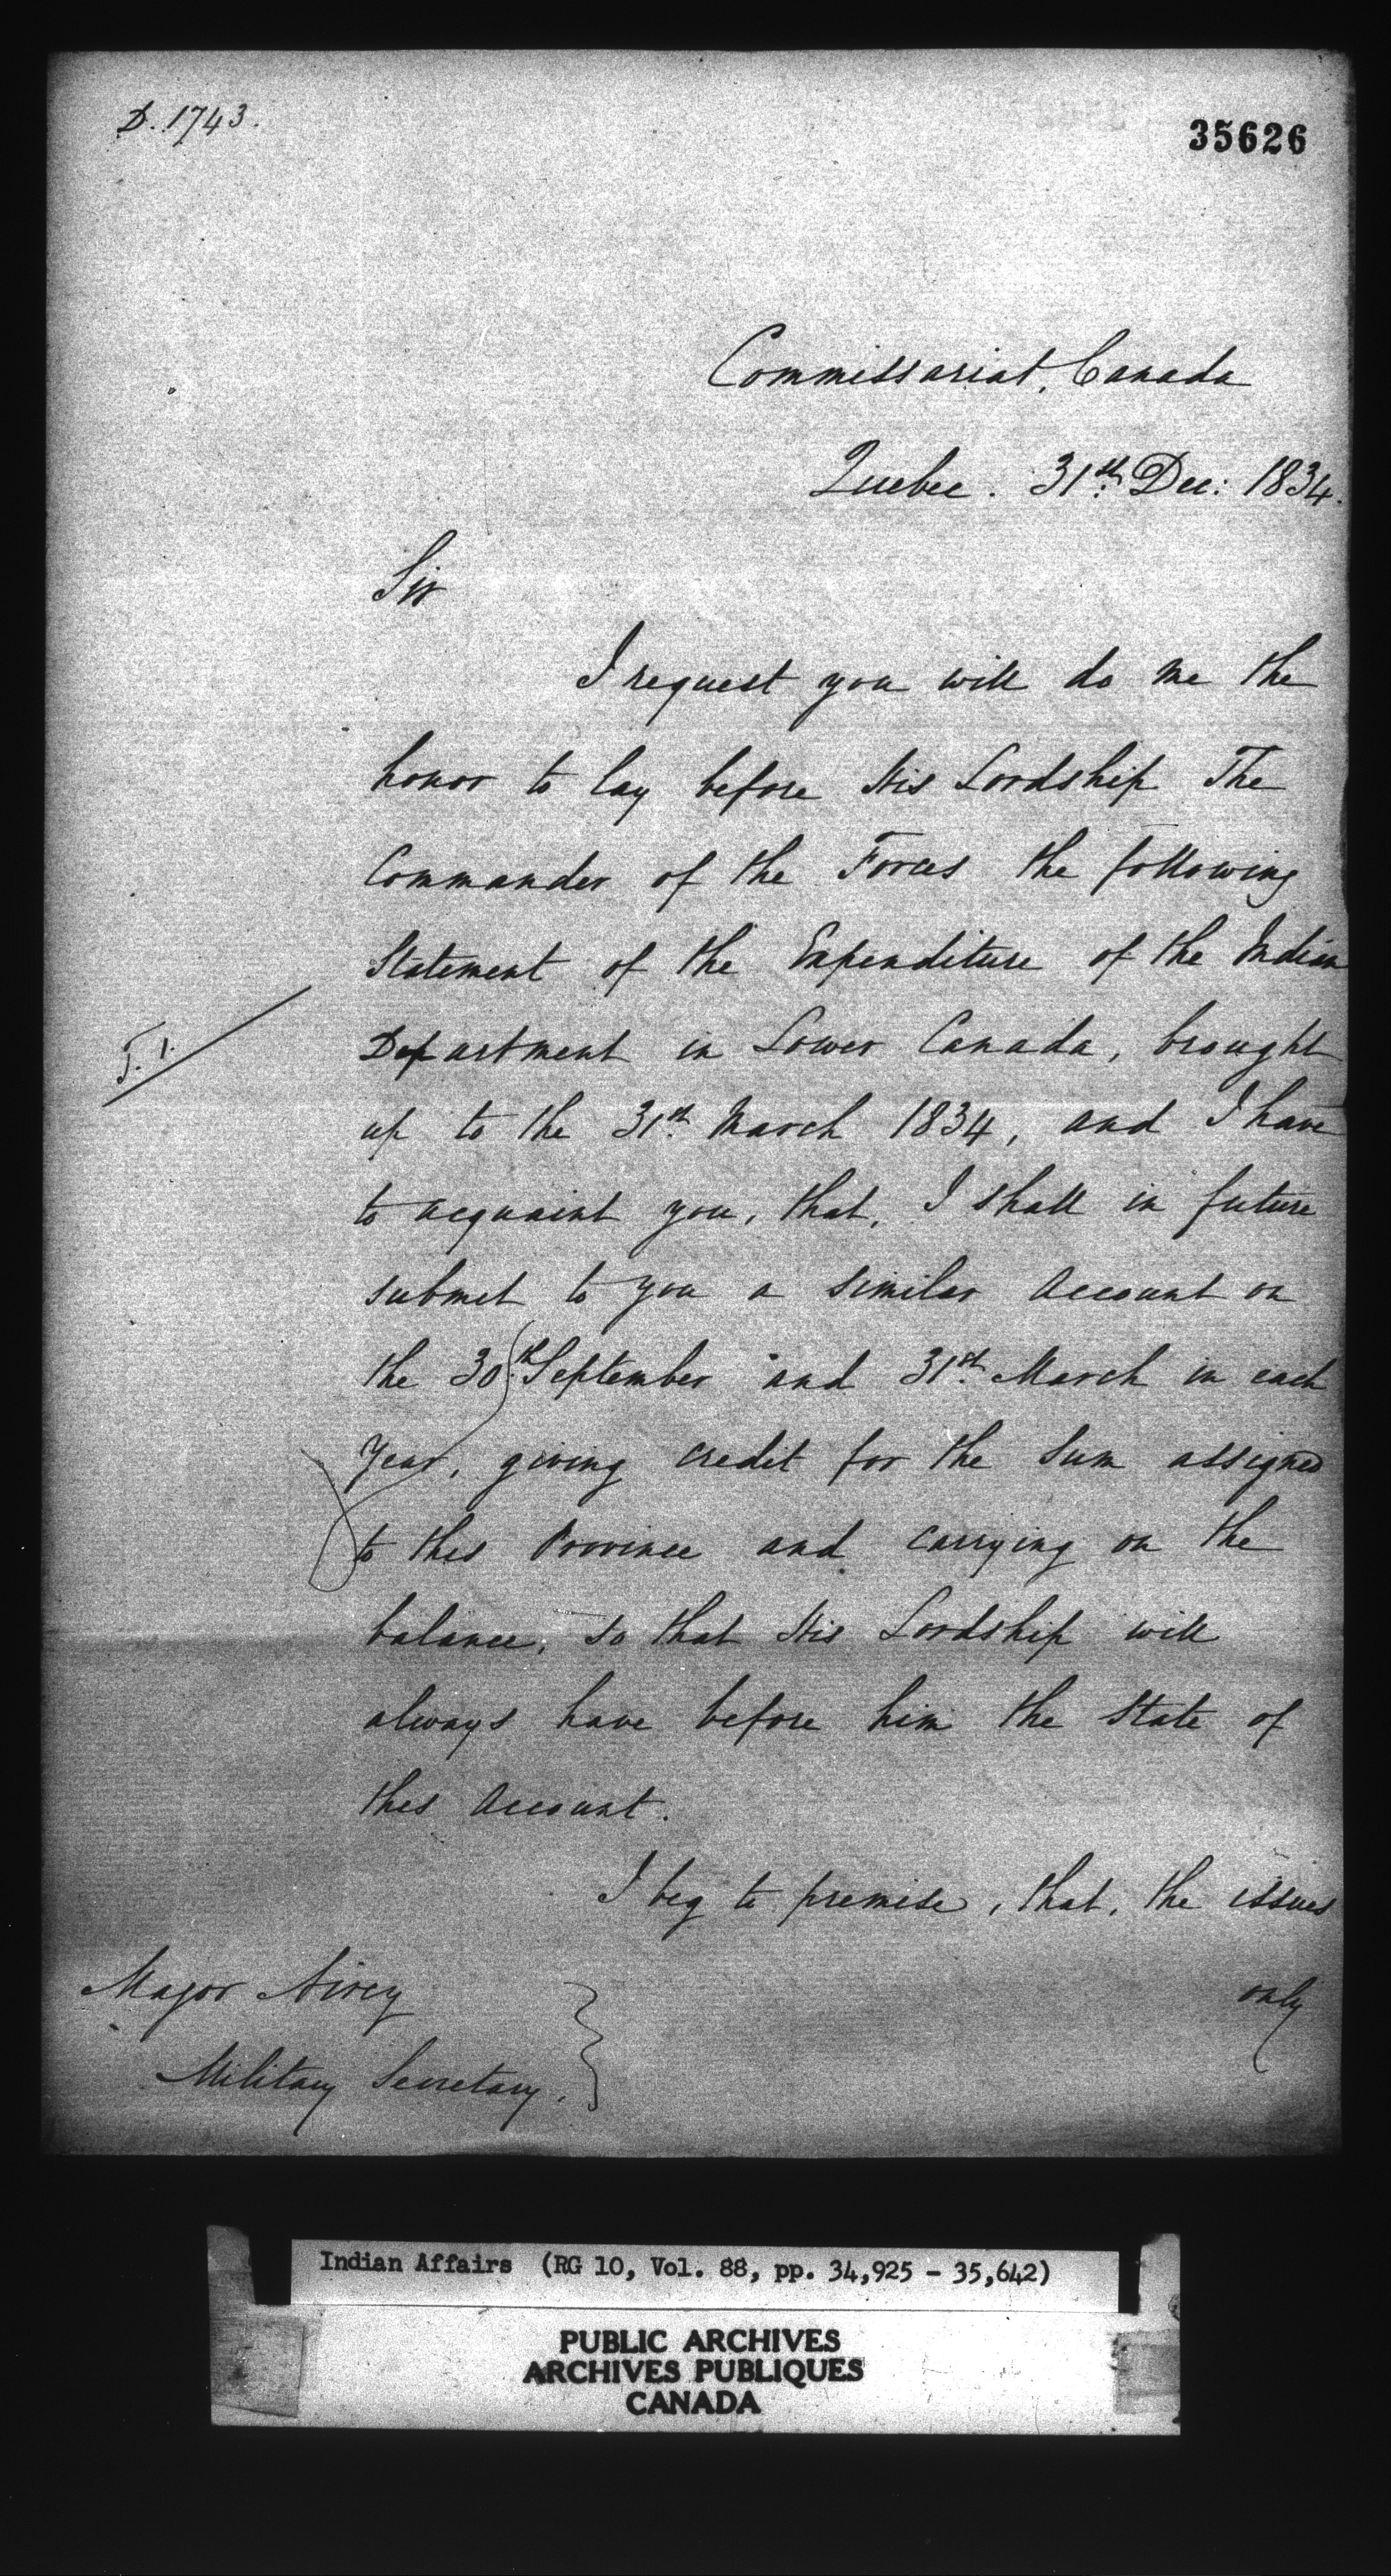 D. 1743.
35626
Commissariat, Canada
Quebec. 31st Dec: 1834.
Sir
I request you will do me the
honor to lay before His Lordship The
Commander of the Forces the following
Statement of the Expenditure of the Indian
Department in Lower Canada, brought
up to the 31st March 1834, and I have
to acquaint you, that, I shall in future
submit to you a similar Account on
the 30th September and 31st March in each
Year, giving credit for the Sum assigned
to this Province and carrying on the
balance, so that His Lordship will
always have before him the State of
this Account.
I beg to premise, that, the issues
only
Major Airey
Military Secretary.
Indian Affairs (RG 10, Vol. 88, pp. 34,925 - 35,642)
PUBLIC ARCHIVES
ARCHIVES PUBLIQUES
CANADA